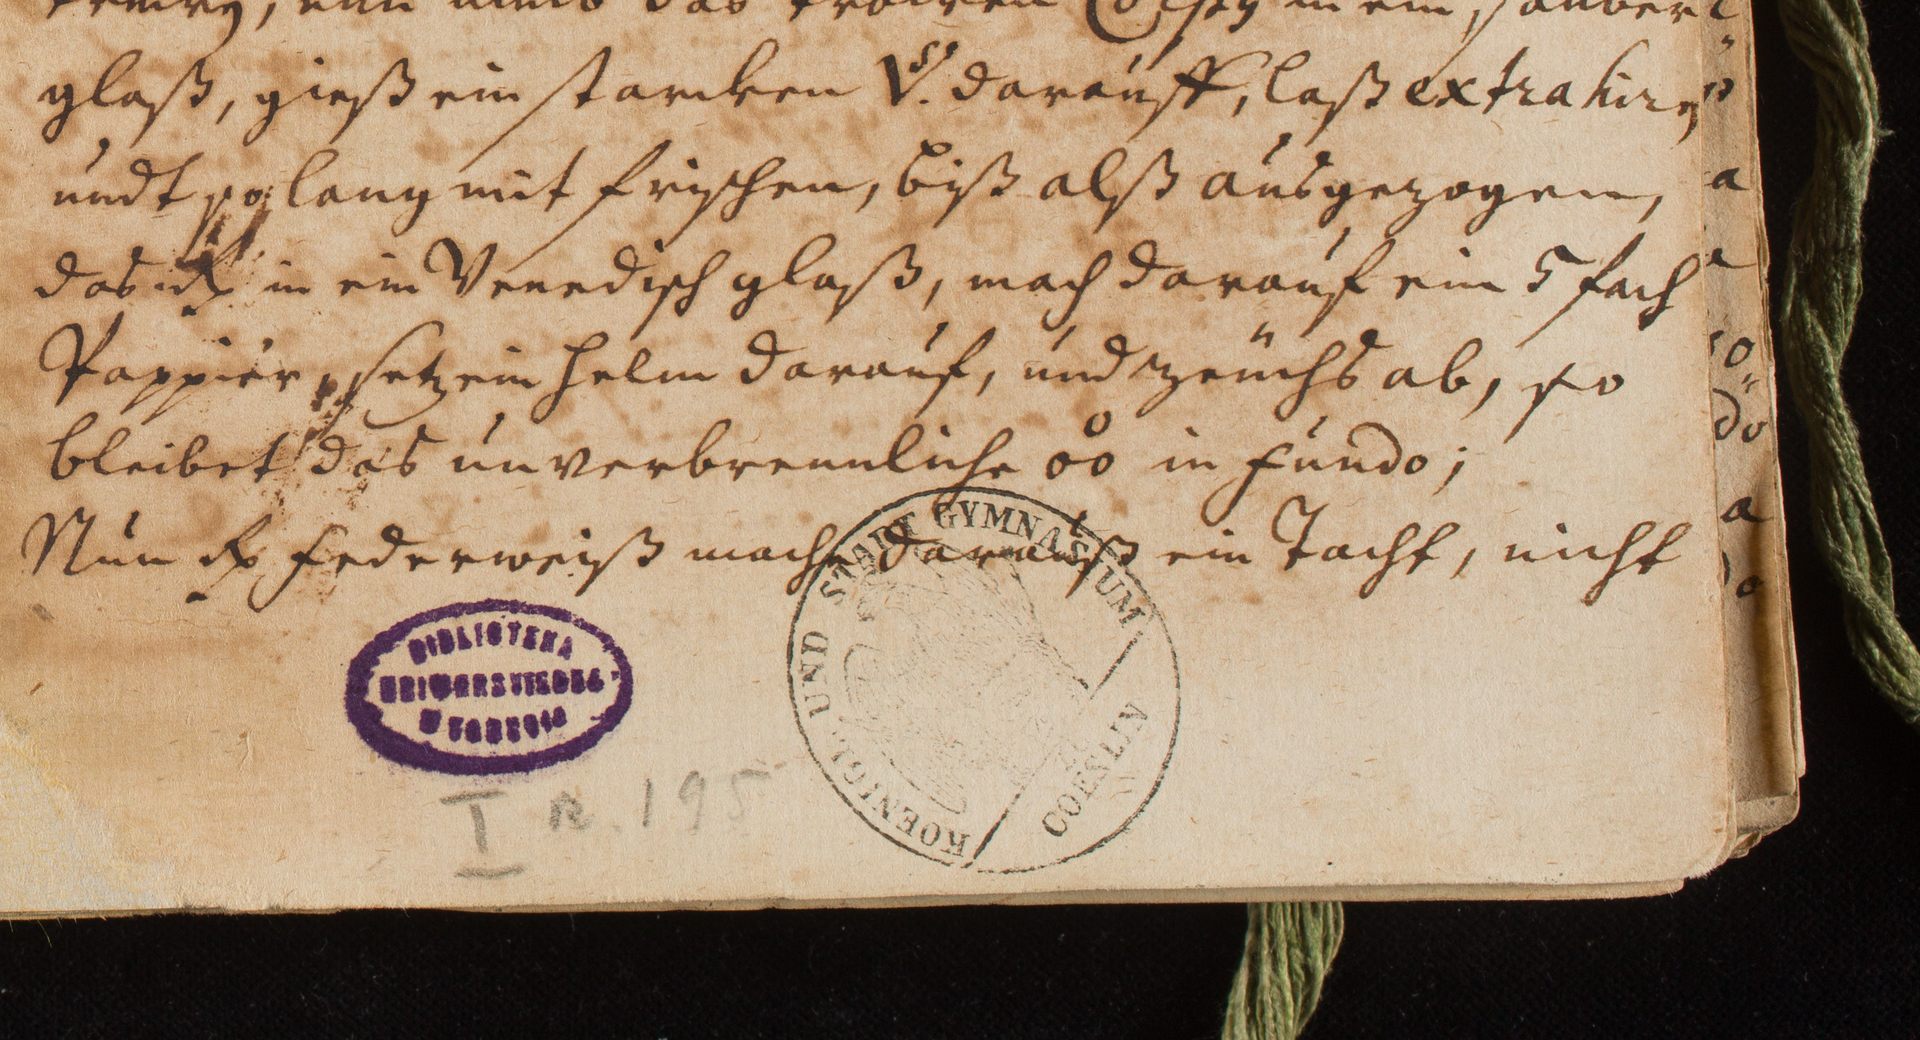 das trocken in ein sauber
glaß, gieß ein starcken V.S darauff, laß extrahirn
undt so lang mit frischen, biß alß ausgezogen,
das in ein Venedisch glaß, mach darauf ein 5 fach
Pappier, setz ein helm darauf, und zeuchs ab, so
bleibet das unverbrennliche in fundo;
Nun Federweiß mach darauß ein Tacht, nicht
BIBLIOTEKA
UNIWERSYTECKA
W TORUNIU
KOENIGL. UND STADT GYMNASIUM
COESLIN
I R. 195